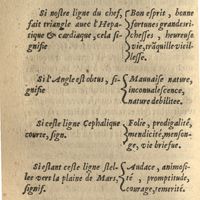 Si nostre ligne du chef,
fait triangle auec l'Hepa
tique & cardiaque, cela si-
gnifie
Bon esprit, bonne
fortune, grandes ri-
chesses, heureuse
vie, trãquille vieil-
lesse.
Si l'Angle est obtus, si-
gnifie
Mauuaise nature,
inconualescence,
nature debilitee.
Si ceste ligne Cephalique
courte, sign.
Folie, prodigalité,
mendicité, menson-
ge, vie briefue.
Si estant ceste ligne esle-
vée vers la plaine de Mars,
signif.
Audace, animosi-
té, promptitude,
courage, temerité.